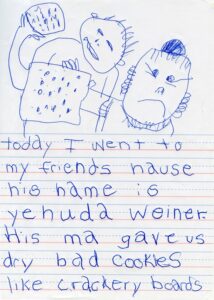 today I went to
my friends hause
his name is
yehuda weiner
His ma gave us
dry bad cookies
like crackery boards